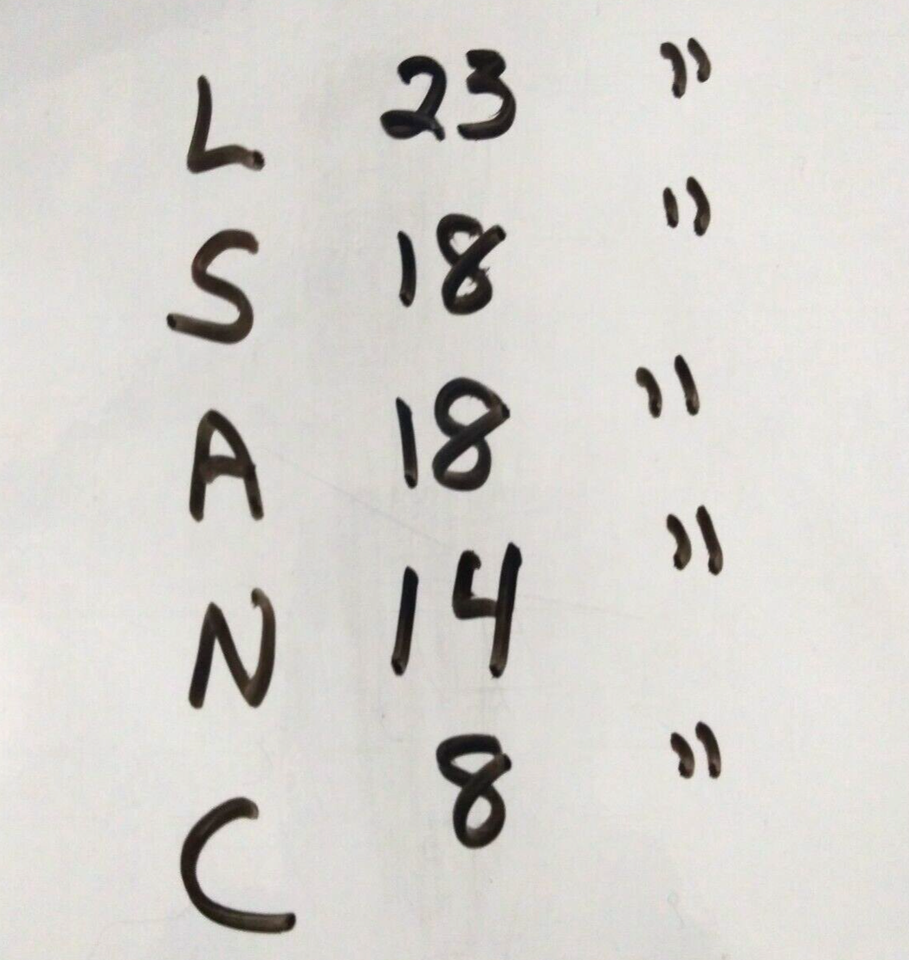 L 23 "
S 18 "
A 18 "
N 14 "
C 8 "